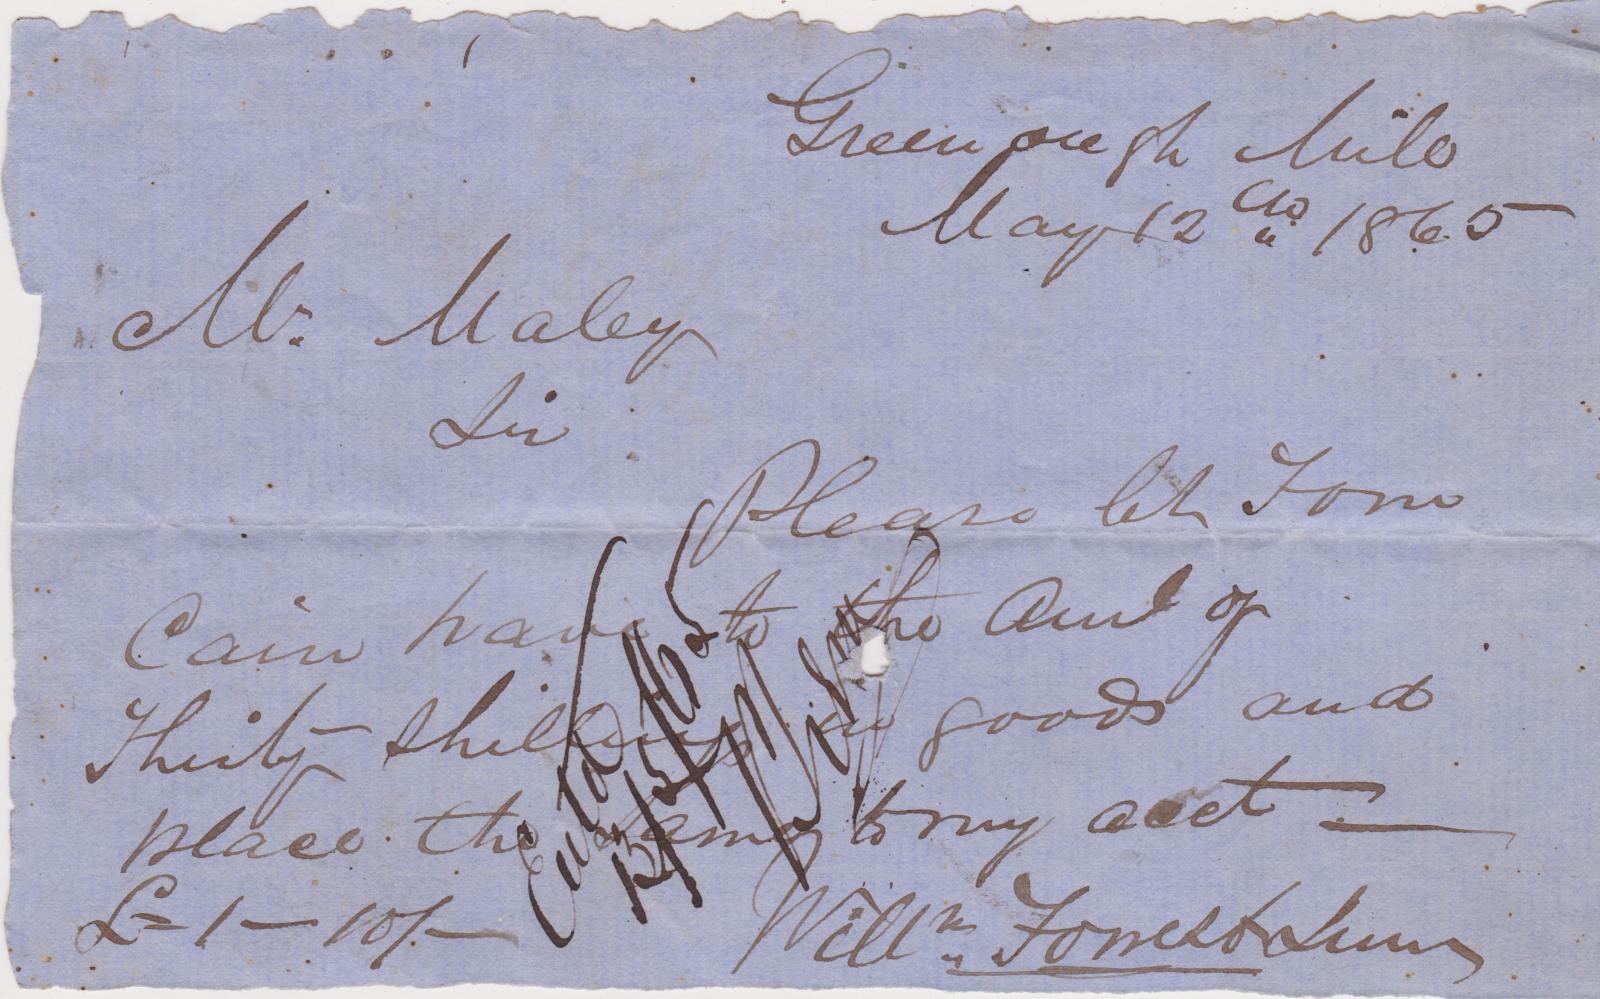 Greenough Mile
May 12th 1865
Mr. Maley
Sir
Please let Tom
Cain have to the Amt of
Thirty shillings in goods and
place the same to my acct —
£=1—10/—
Willm Forrest Senr
Entd